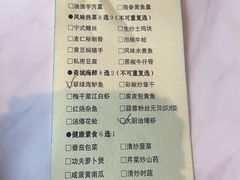 □油渣芋艿羹 □海参黄鱼羹
●风味热菜 8 选 3（不可重复选）
□宁式鳝丝 □生炒土鸡块
□麦仁秘制骨 □泡椒牛蛙
□黄豆焖猪手 □风味水煮鱼
□私房豆腐 □黑椒牛仔骨
海鲜 8 选 2（不可重复选）
翠绿海鲈鱼 □彩椒炒墨干
□梅干菜江白虾 □腐皮包黄鱼
□红烧杂鱼 □蒜蓉粉丝元贝
□活爆花蛤 大厨油爆虾
●健康素食 6 选 1
□番茄包菜 □清炒菠菜
□功夫萝卜煲 □芹菜炒山药
□咸蛋黄南瓜 □清炒时蔬